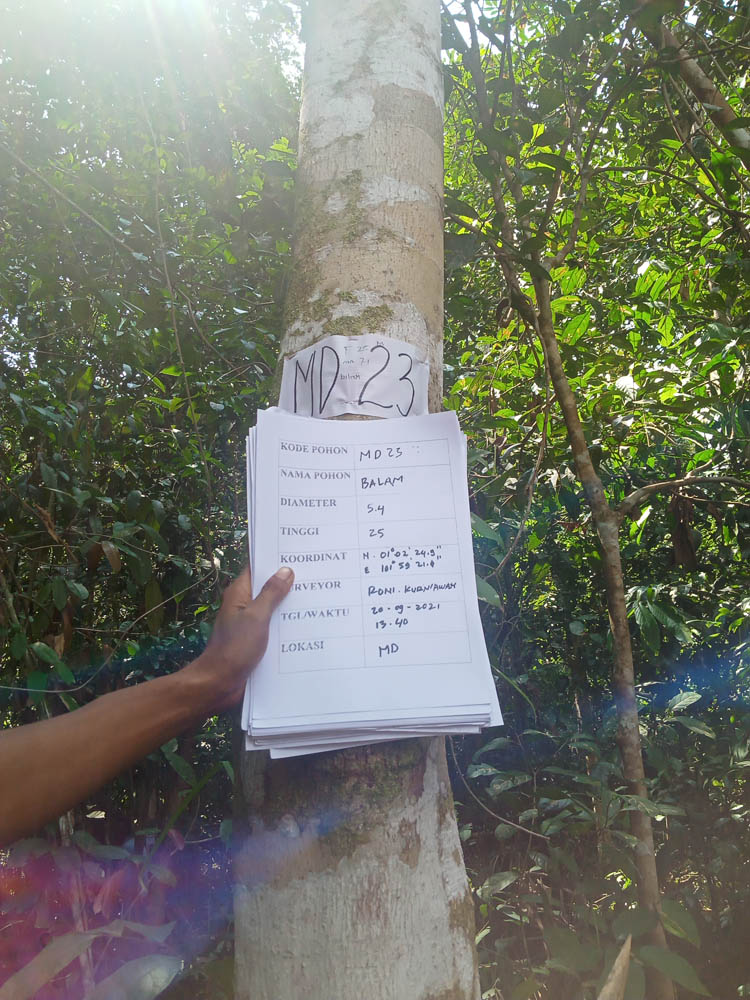 T 25 M
MD 23
KODE POHON MD 23
NAMA POHON BALAM
DIAMETER 5.4
TINGGI 25
KOORDINAT N. 01°02' 24.9"
E 101° 59 21.4"
SURVEYOR RONI. KURNIAWAN
TGL/WAKTU 20-09-2021
13.40
LOKASI MD